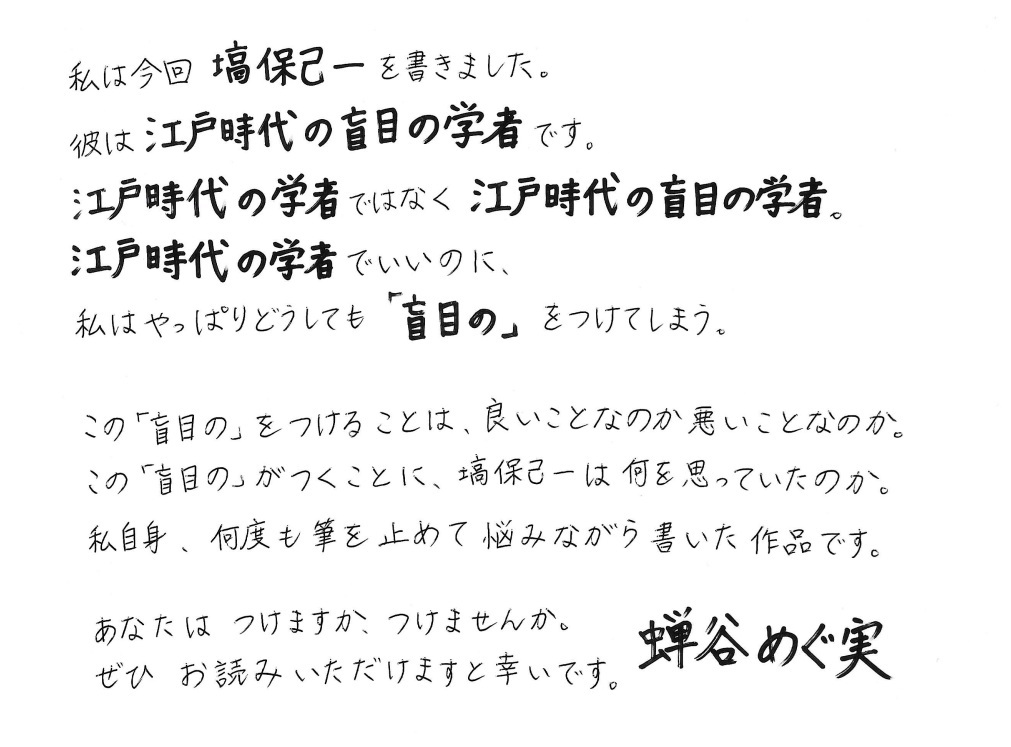 私は今回 塙保己一 を書きました。
彼は 江戸時代の盲目の学者 です。
江戸時代の学者 ではなく 江戸時代の盲目の学者。
江戸時代の学者 でいいのに、
私はやっぱりどうしても「盲目の」をつけてしまう。
この「盲目の」をつけることは、良いことなのか悪いことなのか。
この「盲目の」がつくことに、塙保己一は何を思っていたのか。
私自身、何度も筆を止めて悩みながら書いた作品です。
あなたは つけますか、つけませんか。
ぜひ お読みいただけますと幸いです。
蝉谷めぐ実